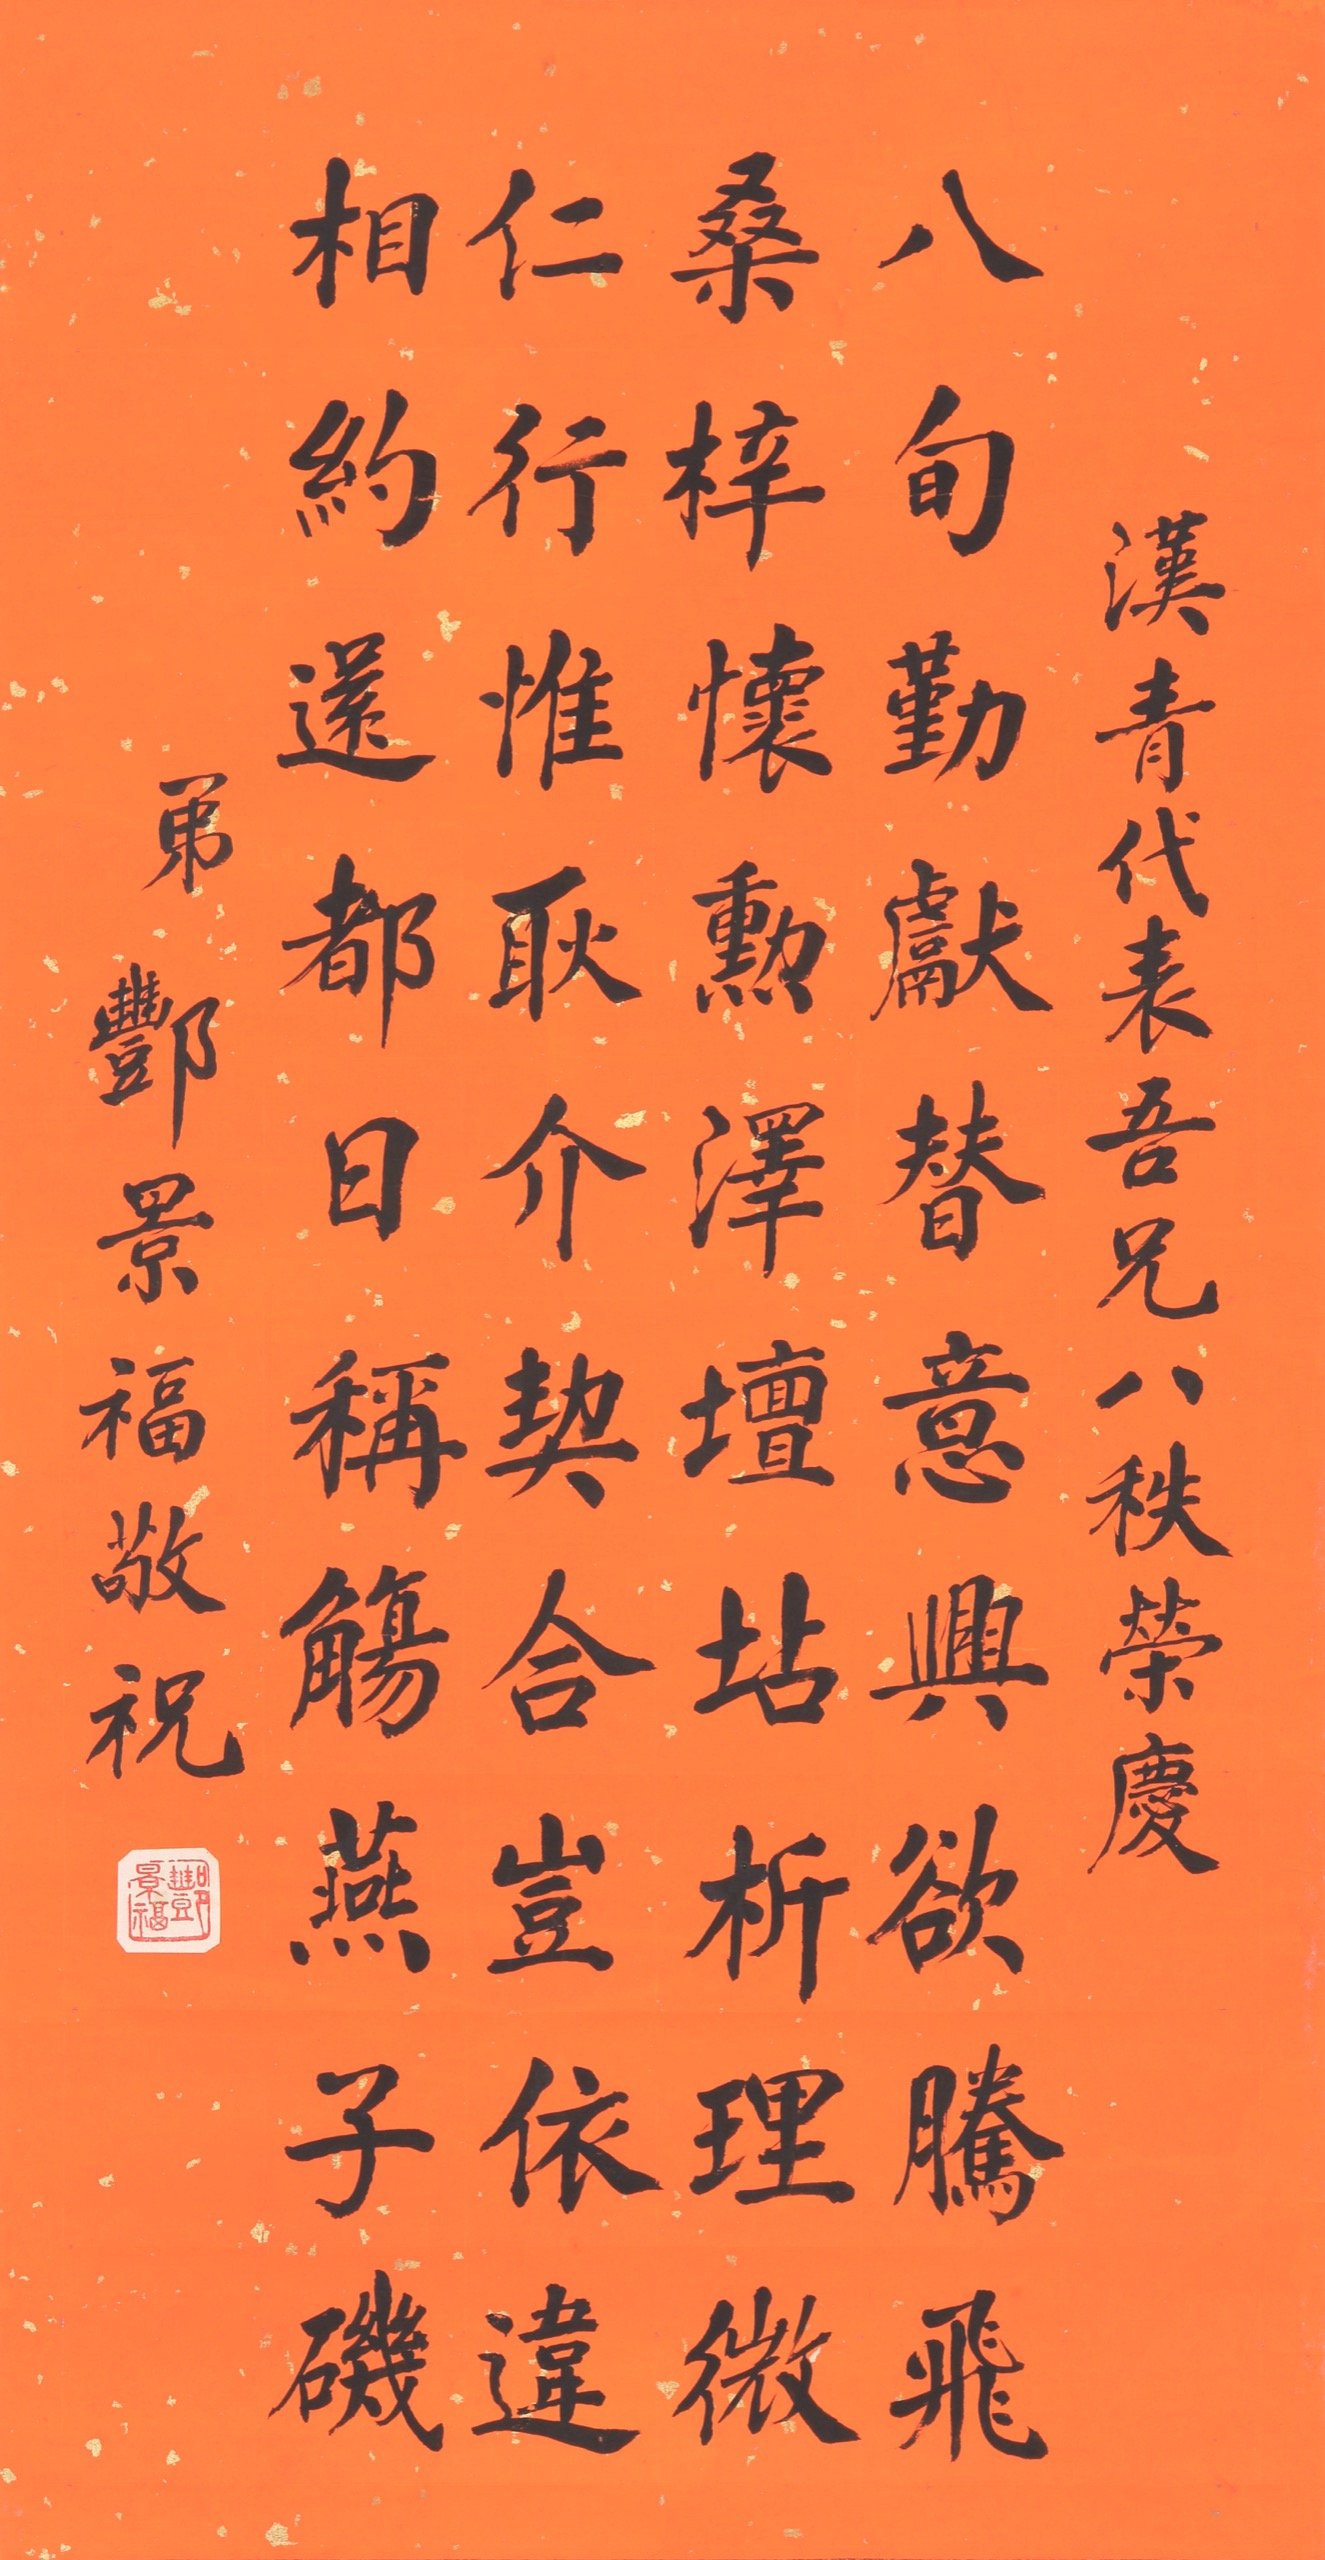 漢青代表吾兄八秩榮慶
八旬勤獻替意興欲騰飛
桑梓懷勳澤壇坫析理微
仁行惟耿介契合豈依違
相約還都日稱觴燕子磯
弟酆景福敬祝
酆景福